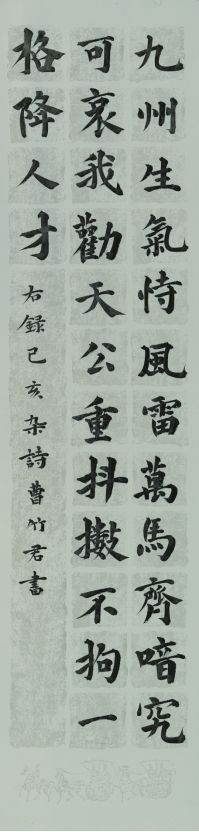 九州生氣恃風雷萬馬齊喑究
可哀我勸天公重抖擻不拘一
格降人才
右録己亥杂詩曹竹君書